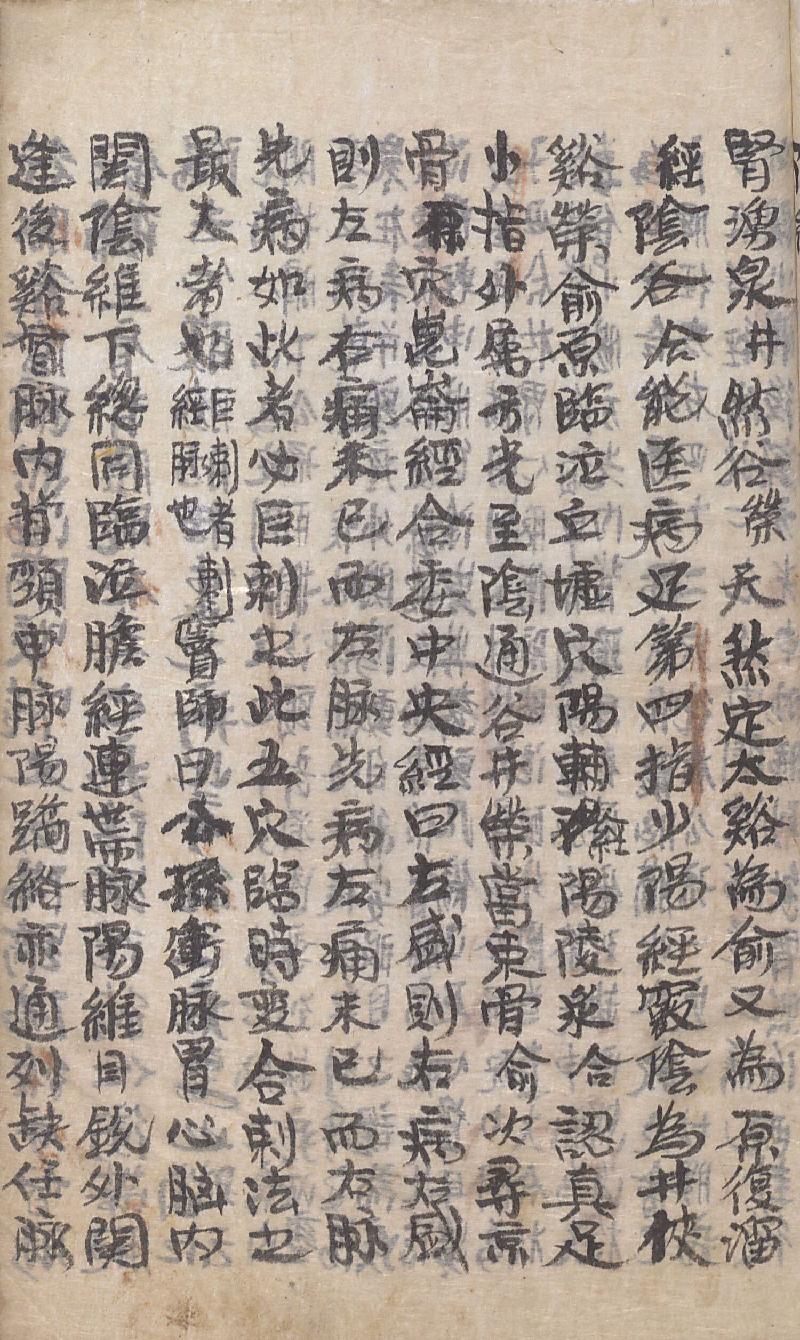 腎湧泉井然谷榮天然定太谿為俞又為原復溜
經陰谷合能医病足第四指少陽經竅陰為井俠
谿榮俞原臨泣丘墟穴陽輔經陽陵泉合認真足
小指外属方光至陰通谷井榮當束骨俞次尋京
骨原穴崑崙經合委中央經曰左盛則右病右盛
則左病右痛未已而左脉先病左痛未已而右脉
先病如此者必巨刺之此五穴臨時变合刺法之
最大者也巨刺者刺經脉也竇師曰公孫衝脉胃心胸内
関陰維下總同臨泣膽經連帯脉陽維目銳外関
逢後谿督脉内背頸申脉陽蹻絡亦通列缺任脉